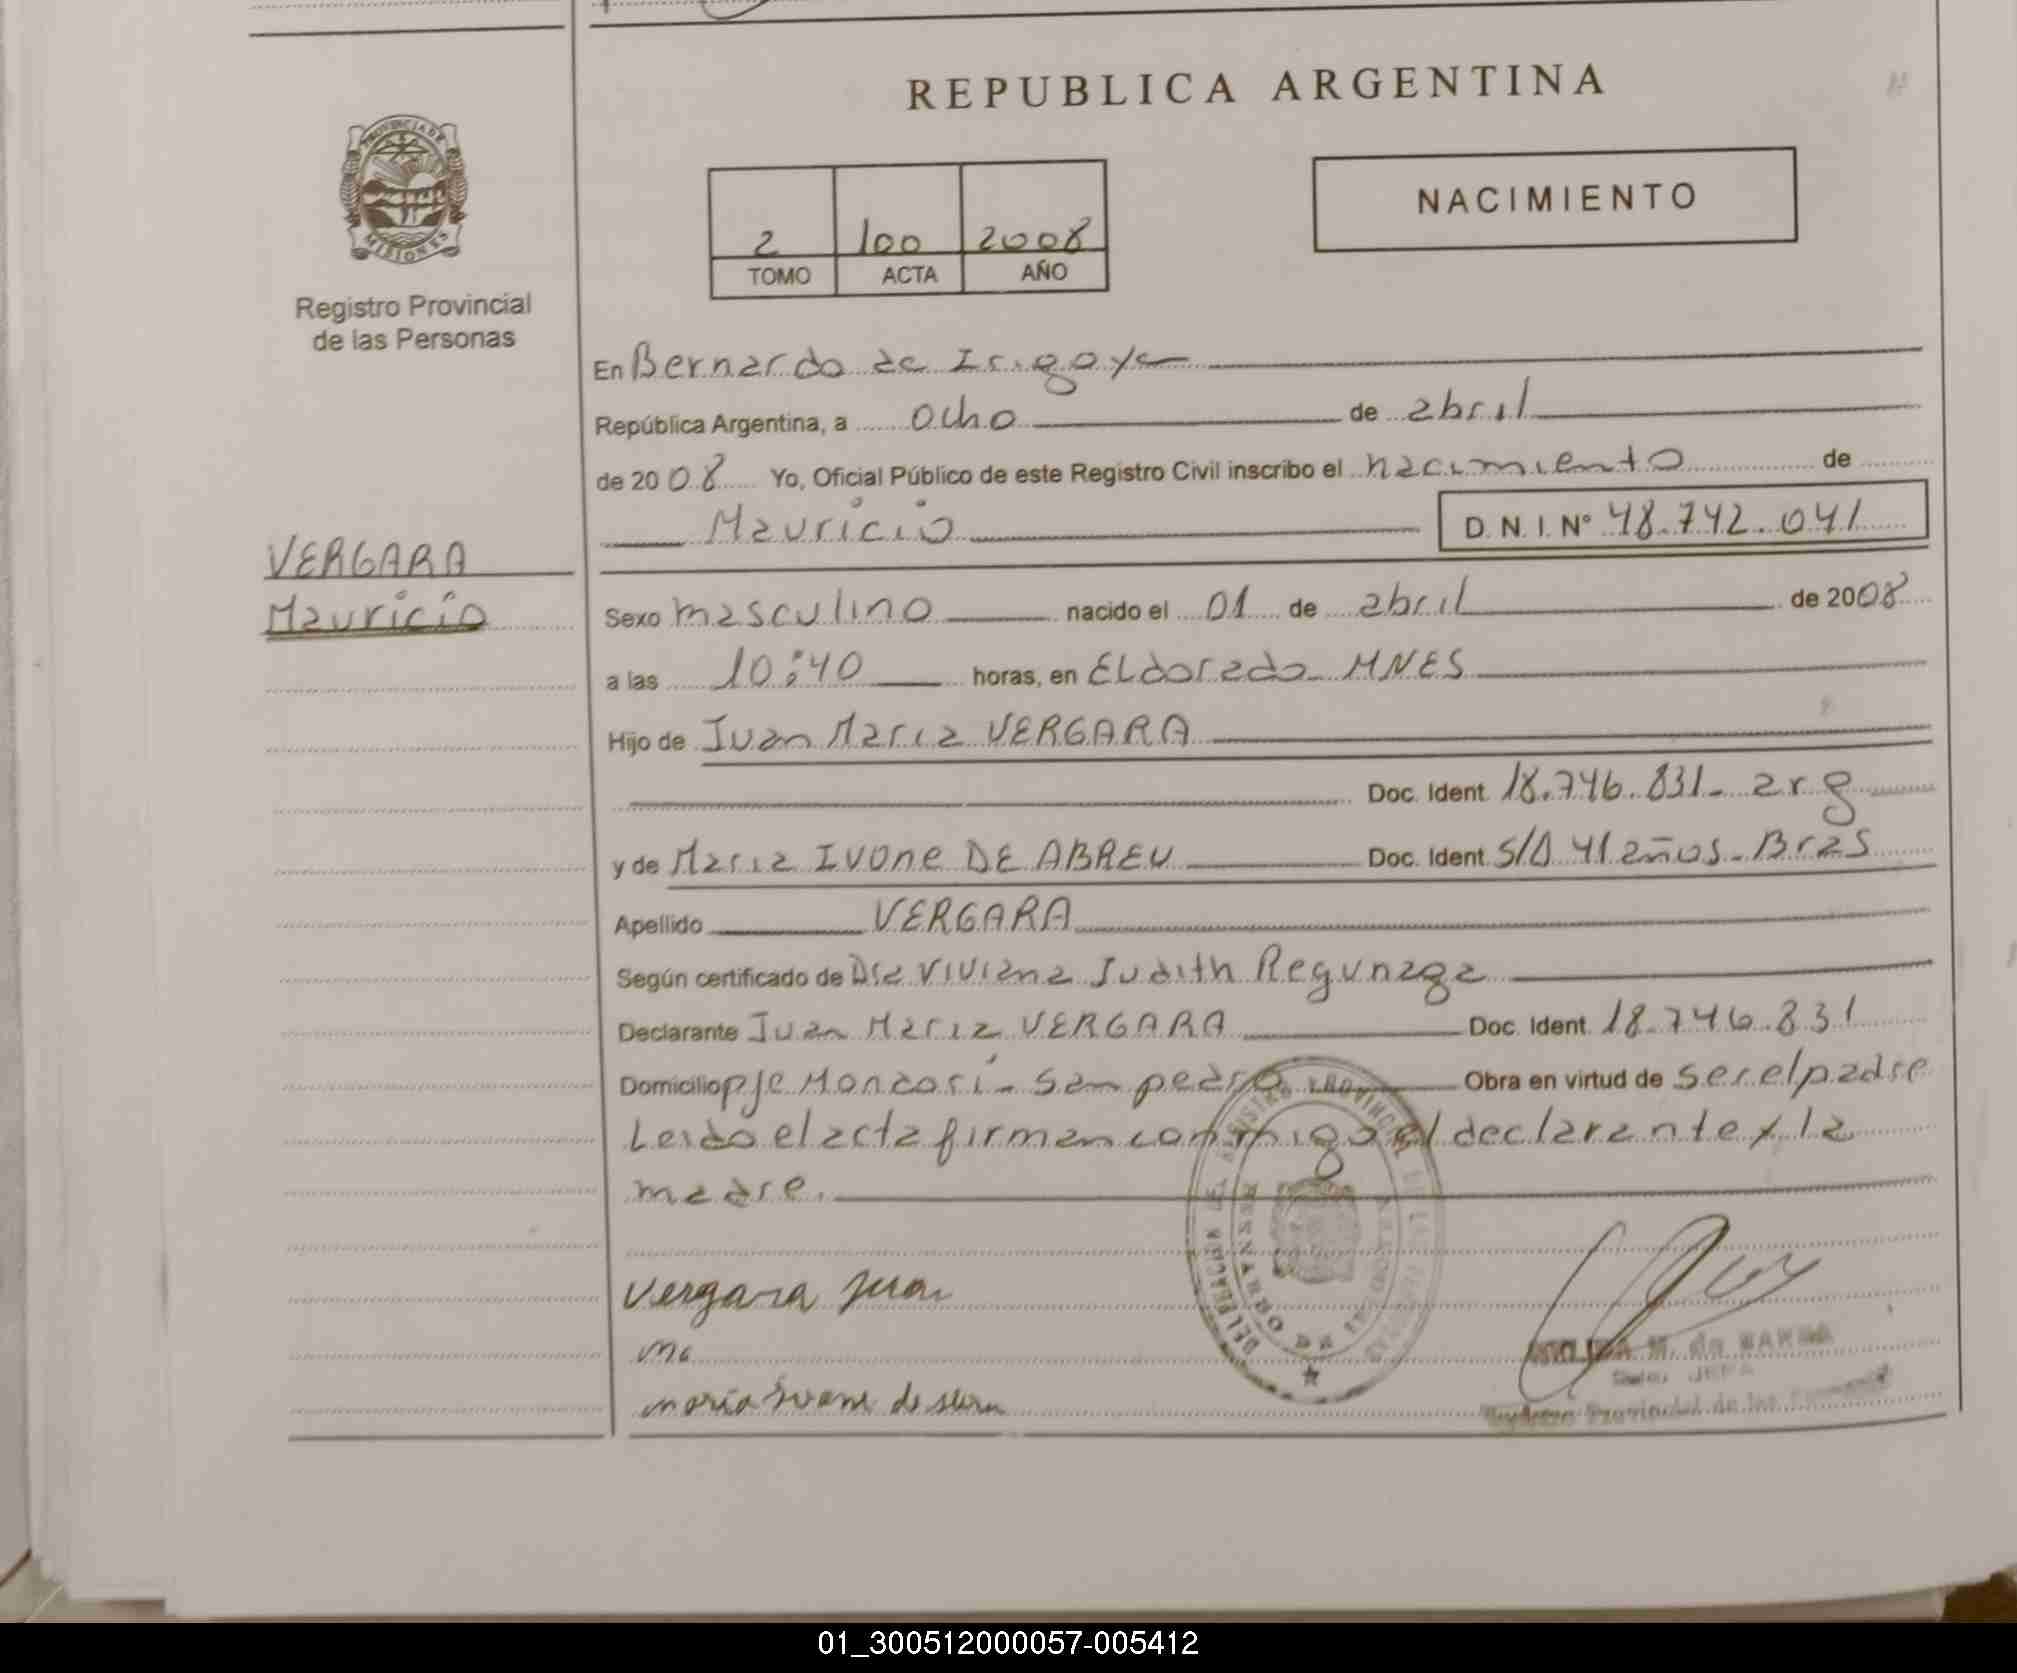 REPUBLICA ARGENTINA
PROVINCIA DE
MISIONES
Registro Provincial
de las Personas
NACIMIENTO
2 100 2008
TOMO ACTA AÑO
En Bernardo de Irigoye
República Argentina, a ocho de abril
de 2008 Yo, Oficial Público de este Registro Civil inscribo el nacimiento de
Mauricio D.N.I. Nº 48.742.041
VERGARA
Mauricio
Sexo masculino nacido el 01 de abril de 2008
a las 10:40 horas, en ELdorado MNES
Hijo de Juan Maria VERGARA
Doc. Ident. 18.746.831- arg
y de Maria Ivone DE ABREU Doc. Ident. S/D 41 años - Bras
Apellido VERGARA
Según certificado de Dra Viviana Judith Regunaga
Declarante Juan Maria VERGARA Doc. Ident. 18.746.831
Domicilio pje - San pedro Obra en virtud de ser el padre
Leido el acta firman conmigo el declarante y la
madre.
Vergara Juan
ma
maria Ivone de
01_300512000057-005412